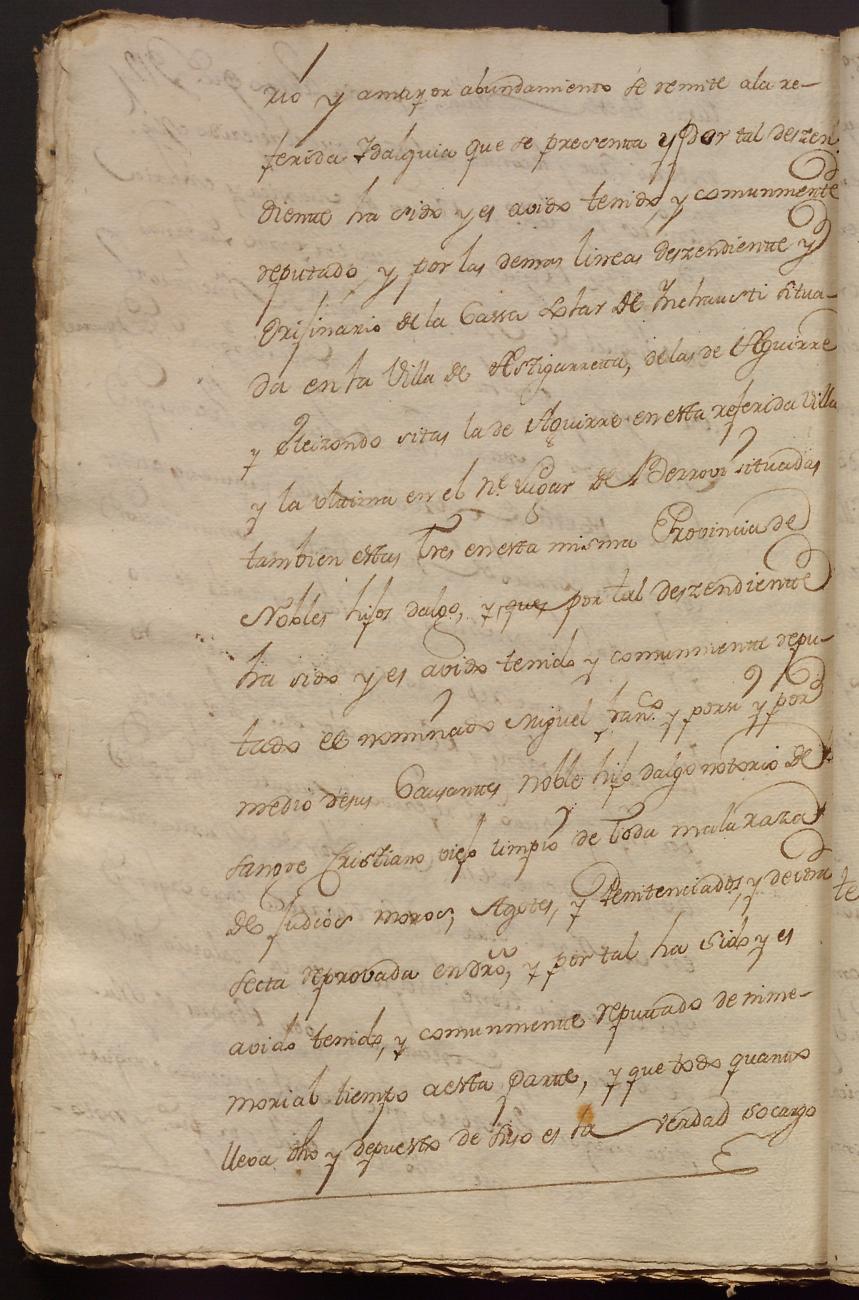 rió y amayor abundamiento se remite ala re-
ferida Ydalguia que se presenta y por tal deszen
diente ha sido y es avido tenido, y comunmente
reputado y por las demas lineas deszendiente y
Orijinario de la Cassa Solar de Inchausti situa-
da en la Villa de Astigarreta, de las de Aguirre
y Eleizondo sitas la de Aguirre en esta referida Villa
y la ultima en el N.e Lugar de Berrovi situadas
tambien estas tres en esta misma Provincia de
Nobles hijos dalgo, y que por tal deszendiente
ha sido y es avido tenido y comunmente repu-
tado el nominado Miguel Fran.co y por si y por
medio desus Causantes noble hijo dalgo notorio de
sangre Cristiano viejo limpio de toda mala raza
de Judios moros, Agotes, y Penitenciados, y de otra
secta reprovada en dro, y por tal ha sido y es
avido tenido, y comunmente reputado de inme-
morial tiempo a esta parte, y que todo quanto
lleva dho y depuesto de suso es la verdad socargo
te